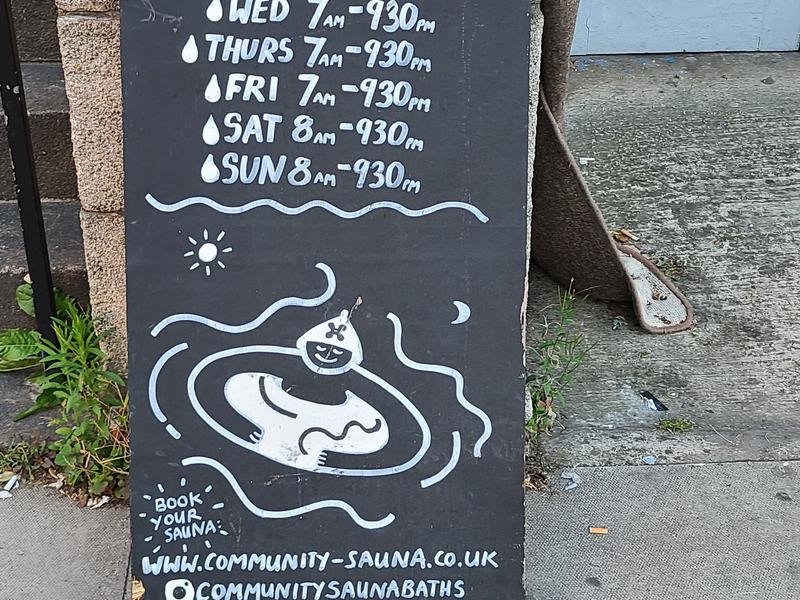 WED 7AM-930PM
THURS 7AM-930PM
FRI 7AM-930PM
SAT 8AM-930PM
SUN 8AM-930PM
BOOK
YOUR
SAUNA
WWW.COMMUNITY-SAUNA.CO.UK
COMMUNITYSAUNABATHS